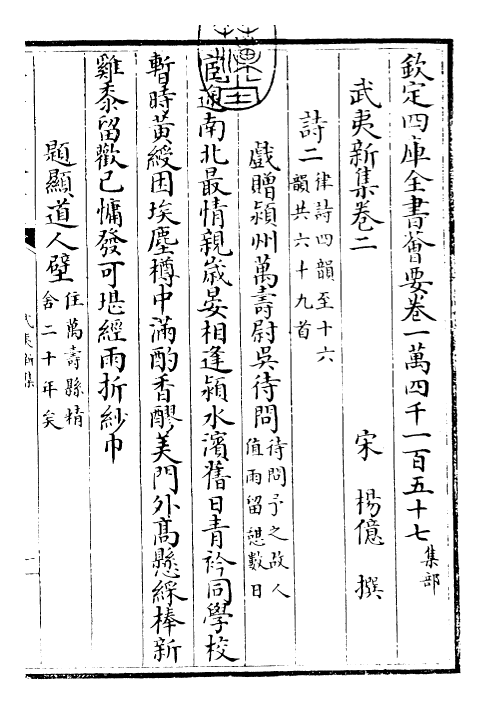 欽定四庫全書薈要卷一萬四千一百五十七 集部
武夷新集卷二 宋 楊億 撰
詩二 律詩四韻至十六韻共六十九首
戲贈潁州萬壽尉吳待問 待問予之故人值雨留憇數日
南北最情親歳晏相逢潁水濱舊日青衿同學校
暫時黄綬困埃塵樽中滿酌香醪美門外高懸綵棒新
雞黍留歡已慵發可堪經雨折紗巾
題顯道人壁 住萬壽縣精舍二十年矣